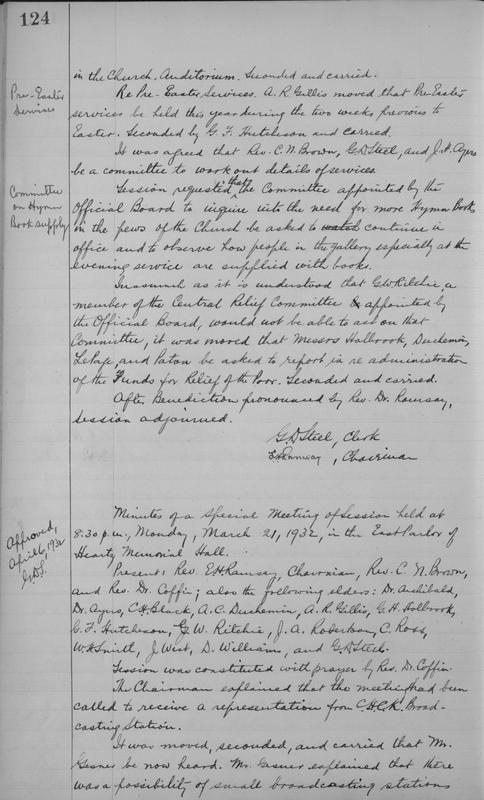 124
in the Church Auditorium. Seconded and carried.
Pre-Easter
Services
Re Pre-Easter Services. A. R. Gillis moved that Pre-Easter
services be held this year during the two weeks previous to
Easter. Seconded by G. F. Hutcheson and carried.
It was agreed that Rev. C. N. Brown, G. D. Steel, and J. A. Ayers
be a committee to work out details of services.
Committee
on Hymn
Book supply
Session requested that the Committee appointed by the
Official Board to inquire into the need for more Hymn Books
in the pews of the Church be asked to watch continue in
office and to observe how people in the gallery especially at the
evening service are supplied with books.
Inasmuch as it is understood that G. W. Ritchie, a
member of the Central Relief Committee appointed by
the Official Board, would not be able to act on that
Committee, it was moved that Messrs Holbrook, Duchemin,
LePage, and Paton be asked to report in re administration
of the Funds for Relief of the Poor. Seconded and carried.
After Benediction pronounced by Rev. Dr. Ramsay,
Session adjourned.
G. D. Steel, Clerk
E. H. Ramsay, Chairman
Approved,
April 6, 1932
G.D.S.
Minutes of a Special Meeting of Session held at
8:30 p.m., Monday, March 21, 1932, in the East Parlor of
Heartz Memorial Hall.
Present: Rev. E. H. Ramsay, Chairman, Rev. C. N. Brown,
and Rev. Dr. Coffin; also the following elders: Dr. Archibald,
Dr. Ayers, C. H. Black, A. C. Duchemin, A. R. Gillis, G. H. Holbrook,
G. F. Hutcheson, G. W. Ritchie, J. A. Robertson, C. Ross,
W. H. Smith, J. West, D. Williams, and G. D. Steel.
Session was constituted with prayer by Rev. Dr. Coffin.
The Chairman explained that the meeting had been
called to receive a representation from C.H.C.K. Broad-
casting Station.
It was moved, seconded, and carried that Mr.
Gesner be now heard. Mr. Gesner explained that there
was a possibility of small broadcasting stations